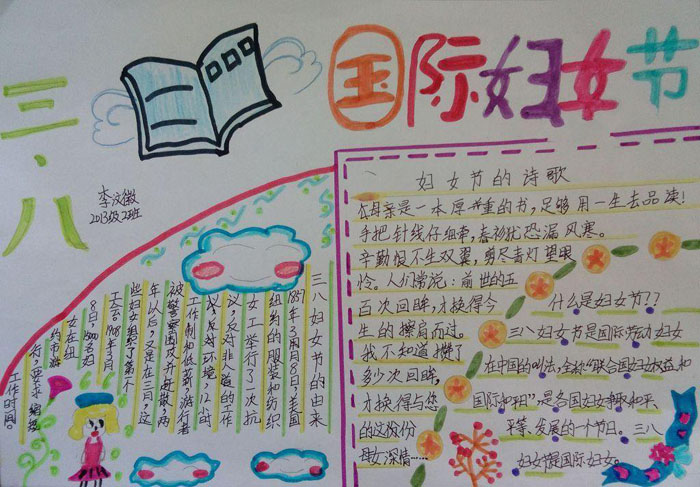 三、八
国际妇女节
李汶徽
2013级2班
三八妇女节的由来
1857年3月8日,美国
纽约的服装和纺织
女工举行了一次抗
议,反对非人道的工作
工作制和低薪。游行者
被警察围攻并赶散,两
年以后,又是在三月,这
些妇女组织了第一个
工会。1908年3月
8日,1500名妇
女在纽
约市游
行,要求缩短
工作时间。
妇女节的诗歌
母亲是一本厚重的书,足够用一生去品读!
手把针线仔细牵,春衫犹恐漏风寒。
辛勤恨不生双翼,剪尽青灯望眼
人们常说:前世的五
百次回眸,才换得今
生的擦肩而过。
我不知道攒了
多少次回眸,
才换得与您
的这份
母女深情……
什么是妇女节??
三八妇女节是国际劳动妇女
在中国的叫法,全称"联合国妇女权益和
国际和平",是各国妇女争取和平、
平等、发展的一个节日。三八
妇女节是国际妇女。